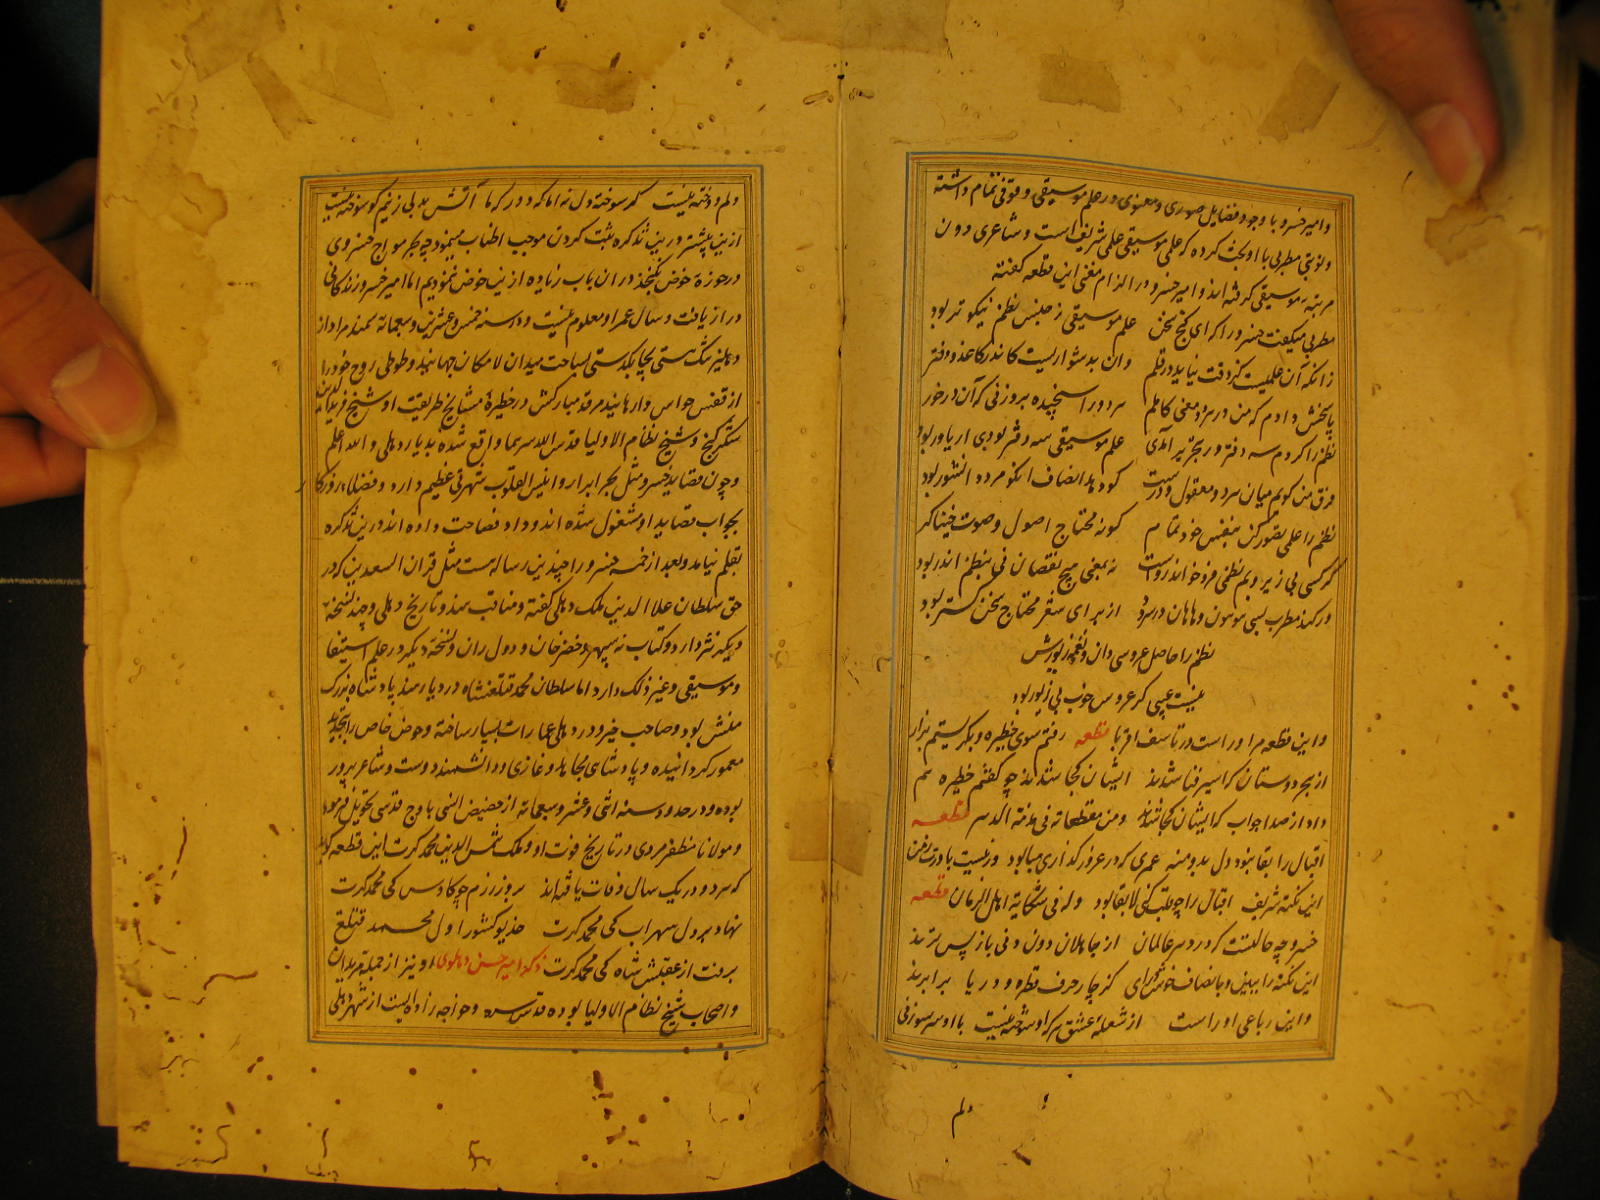 وامیر خسرو با وجود فضایل صوری و معنوی در علم موسیقی وقوفی تمام داشته
ونوبتی مطربی با او بحث کرده که علم موسیقی علمی شریف است و شاعری دون
مرتبه موسیقی گرفته اند وامیر خسرو در الزام مغنی این قطعه گفته
مطربی میکفت خسرو را که ای کنج سخن علم موسیقی ز جنس نظم نیکوتر بود
زانکه آن علمیست کز دقت نیاید در قلم وان بدشواریست کاندر کاغذ و دفتر
پاسخش دادم که من در هر دو معنی کاملم هر دو را سنجیده بر وزنی که آن در خور
نظم را کردم سه دفتر ور بتحریر آمدی علم موسیقی سه دفتر بودی ار باور بود
فرق من کویم میان هر دو معقول و درست کو دهد انصاف آن کز هر دو دانشور بود
نظم را علمی تصور کن بنفس خود تمام کو نه محتاج اصول و صوت خنیاکر
کر کسی بی زیر و بم نظمی فرو خواند رواست نه بمعنی هیچ نقصان نی بنظم اندر بود
ور کند مطرب بسی هوهون و هاهان در سرود از برای شعر محتاج سخن گستر بود
نظم را حاصل عروسی دان و نغمه زیورش
نیست عیبی کر عروس خوب بی زیور بود
واین قطعه مر او راست در تاسف اقربا قطعه رفتم سوی خطیره و بکریستم بزار
از هجر دوستان که اسیر فنا شدند ایشان کجا شدند چو کفتم خطیره هم
داد از صدا جواب که ایشان کجا شدند ومن مقطعاته فی مذمة الدهر قطعه
اقبال را بقا نبود دل بدو منه عمری که در غرور گذاری هبا بود ور نیست باورت ز من
این نکته شریف اقبال را چو قلب کنی لابقا بود وله فی شکایة اهل الزمان قطعه
خسرو چه حالتست که در دور عالمان از جاهلان دون و دنی باز پس ترند
این نکته را ببین و بانصاف خوش برای کز چار حرف قطره و دریا برابرند
واین رباعی او راست از شعله عشق هر که او سوخته نیست با او سر سوزنی
ولم
ولم دوخته نیست کر سوخته دل نه ای ز ما دور که ما آتش بدلی زنیم کو سوخته نیست
ازین بیشتر درین تذکره ثبت کردن موجب اطناب مینمود چه بحر مواج خسروی
در حوزه خوض نکنجد در ان باب زیاده ازین خوض ننمودیم اما امیر خسرو زندکانی
دراز یافت و سال عمر او معلوم نیست ودر سنه خمس و عشرین و سبعمائه سمند مراد از
دهلیز تنک هستی بچابکدستی بساحت میدان لامکان جهانید و طوطی روح خود را
از قفس حواس وارهانید مرقد مبارکش در خطیرۀ مشایخ طریقت او شیخ فرید الدین
شکر کنج و شیخ نظام الاولیا قدس الله سرهما واقع شده بدیار دهلی والله اعلم
وچون قصاید خسرو مثل بحر ابرار وانیس القلوب شهرتی عظیم دارد و فضلاء روزکار
بجواب قصاید او مشغول شده اند و داد فصاحت داده اند درین تذکره
بقلم نیامد وبعد از خمسه خسرو را چندین رساله هست مثل قران السعدین که در
حق سلطان علاء الدین ملک دهلی کفته ومناقب هند و تاریخ دهلی و چند نسخه
دیکر نثر دارد و کتاب نه سپهر و خضر خان و دول ران و نسخه دیکر در علم استیفا
وموسیقی وغیر ذلک دارد اما سلطان محمد قتلغشاه در دیار هند پادشاه بزرک
منش بود و صاحب خیر و در دهلی عمارات بسیار ساخته و حوض خاص را بتجدید
معمور کردانیده و پادشاهی بجا ده و غازی و دانشمند دوست و شاعر پرور
بوده ودر حدود سنه اثنی و عشر و سبعمائه از حضیض انسی باوج قدسی تحویل فرمود
ومولانا مظفر هروی در تاریخ فوت او و ملک شمس الدین محمد کرت این قطعه کوید
که هر دو در یک سال وفات یافته اند بروز رزم چو کاوس کی محمد کرت
نهاد بر دل سهراب کی محمد کرت خدیو کشور اول محمد قتلغ
برفت از عقبش شاه کی محمد کرت ذکر امیر حسن دهلوی او نیز از جمله مریدان
واصحاب شیخ نظام الاولیا بوده قدس سره وخواجه زاده ایست از شهر دهلی